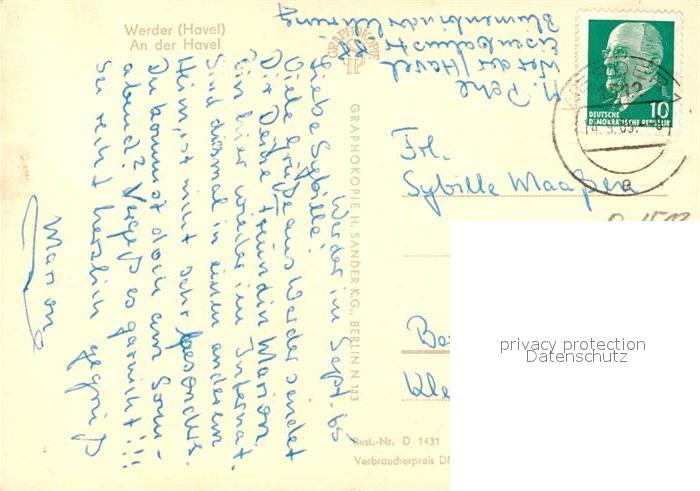 Werder (Havel)
An der Havel
M. Pohl
Werder/Havel
Eisenbahnstr.
Blumenbinderlehrling
GRAPHOKOPIE
DEUTSCHE
DEMOKRATISCHE REPUBLIK
10
Frl.
Sybille Maaßen
Be
Kle
privacy protection
Datenschutz
GRAPHOKOPIE H. SANDER K.G., BERLIN N 113
Best.-Nr. D 1431
Verbraucherpreis DM
Werder im Sept. 65
Liebe Sybille!
Viele Grüße aus Werder sendet
Dir Deine Freundin Marion.
Bin hier wieder im Internat.
Sind diesmal in einem anderem
Heim, ist nicht sehr besonders.
Du kommst doch am Sonn-
abend? Vergeß es garnicht!!!
Sei recht herzlich gegrüßt
Marion